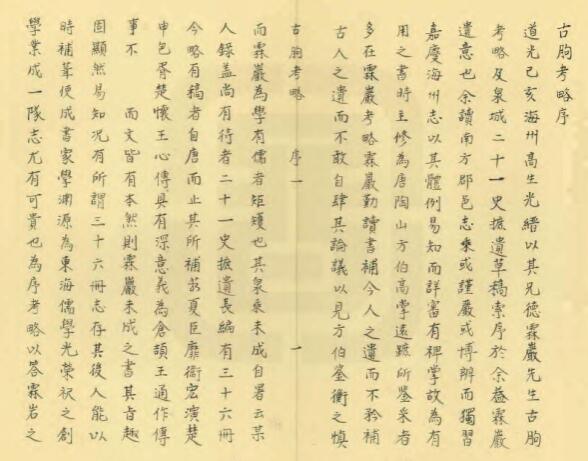 古朐考略序
道光己亥海州高生光縉以其兄德霖巖先生古朐
考略及泉城二十一史摭遺草稿索序於余葢霖巖
遺意也余讀南方郡邑志乘或謹嚴或博辨而獨習
嘉慶海州志以其體例易知而詳審有裨掌故為有
用之書時主修為唐陶山方伯高掌遠蹠所鋻采者
多在霖巖考略霖巖勤讀書補今人之遺而不矜補
古人之遺而不敢自肆其論議以見方伯鋻衡之慎
古朐考略 序一 一
而霖巖為學有儒者矩矱也其泉乘未成自署云某
人錄盖尚有待者二十一史摭遺長編有三十六冊
今略有稿者自唐而止其所補若夏臣靡衛宏演楚
申包胥楚懷王心傳具有深意義為倉頡王通作傳
事不 而文皆有本然則霖巖未成之書其旨趣
固顯然易知况有所謂三十六冊志存其後人能以
時補葺便成書家學淵源為東海儒學光榮祝之創
學業成一隊志尤有可貴也為序考略以答霖岩之